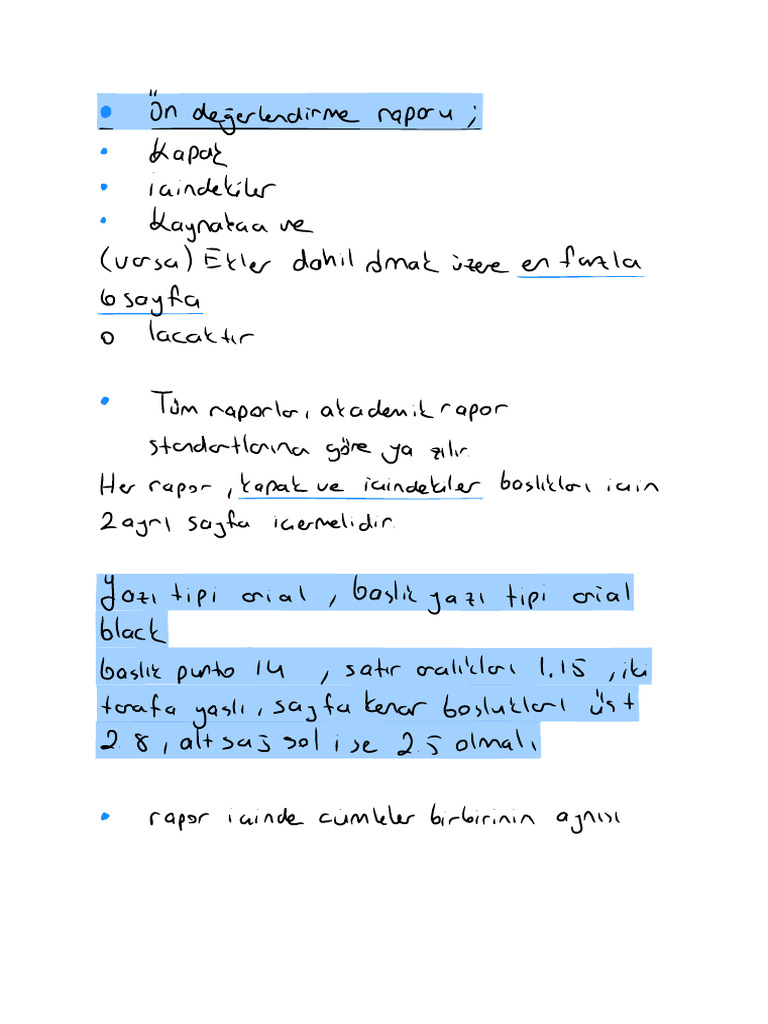 • Ön değerlendirme raporu ;
• Kapak
• içindekiler
• Kaynakça ve
(varsa) Ekler dahil olmak üzere en fazla
6 sayfa
o lacaktır
• Tüm raporlar, akademik rapor
standartlarına göre ya zılır.
Her rapor, kapak ve içindekiler başlıkları için
2 ayrı sayfa içermelidir.
Yazı tipi arial, başlık yazı tipi arial
black
başlık punto 14, satır aralıkları 1.15, iki
tarafa yaslı, sayfa kenar boşlukları üst
2.8, alt sağ sol ise 2.5 olmalı
• rapor içinde cümleler birbirinin aynısı